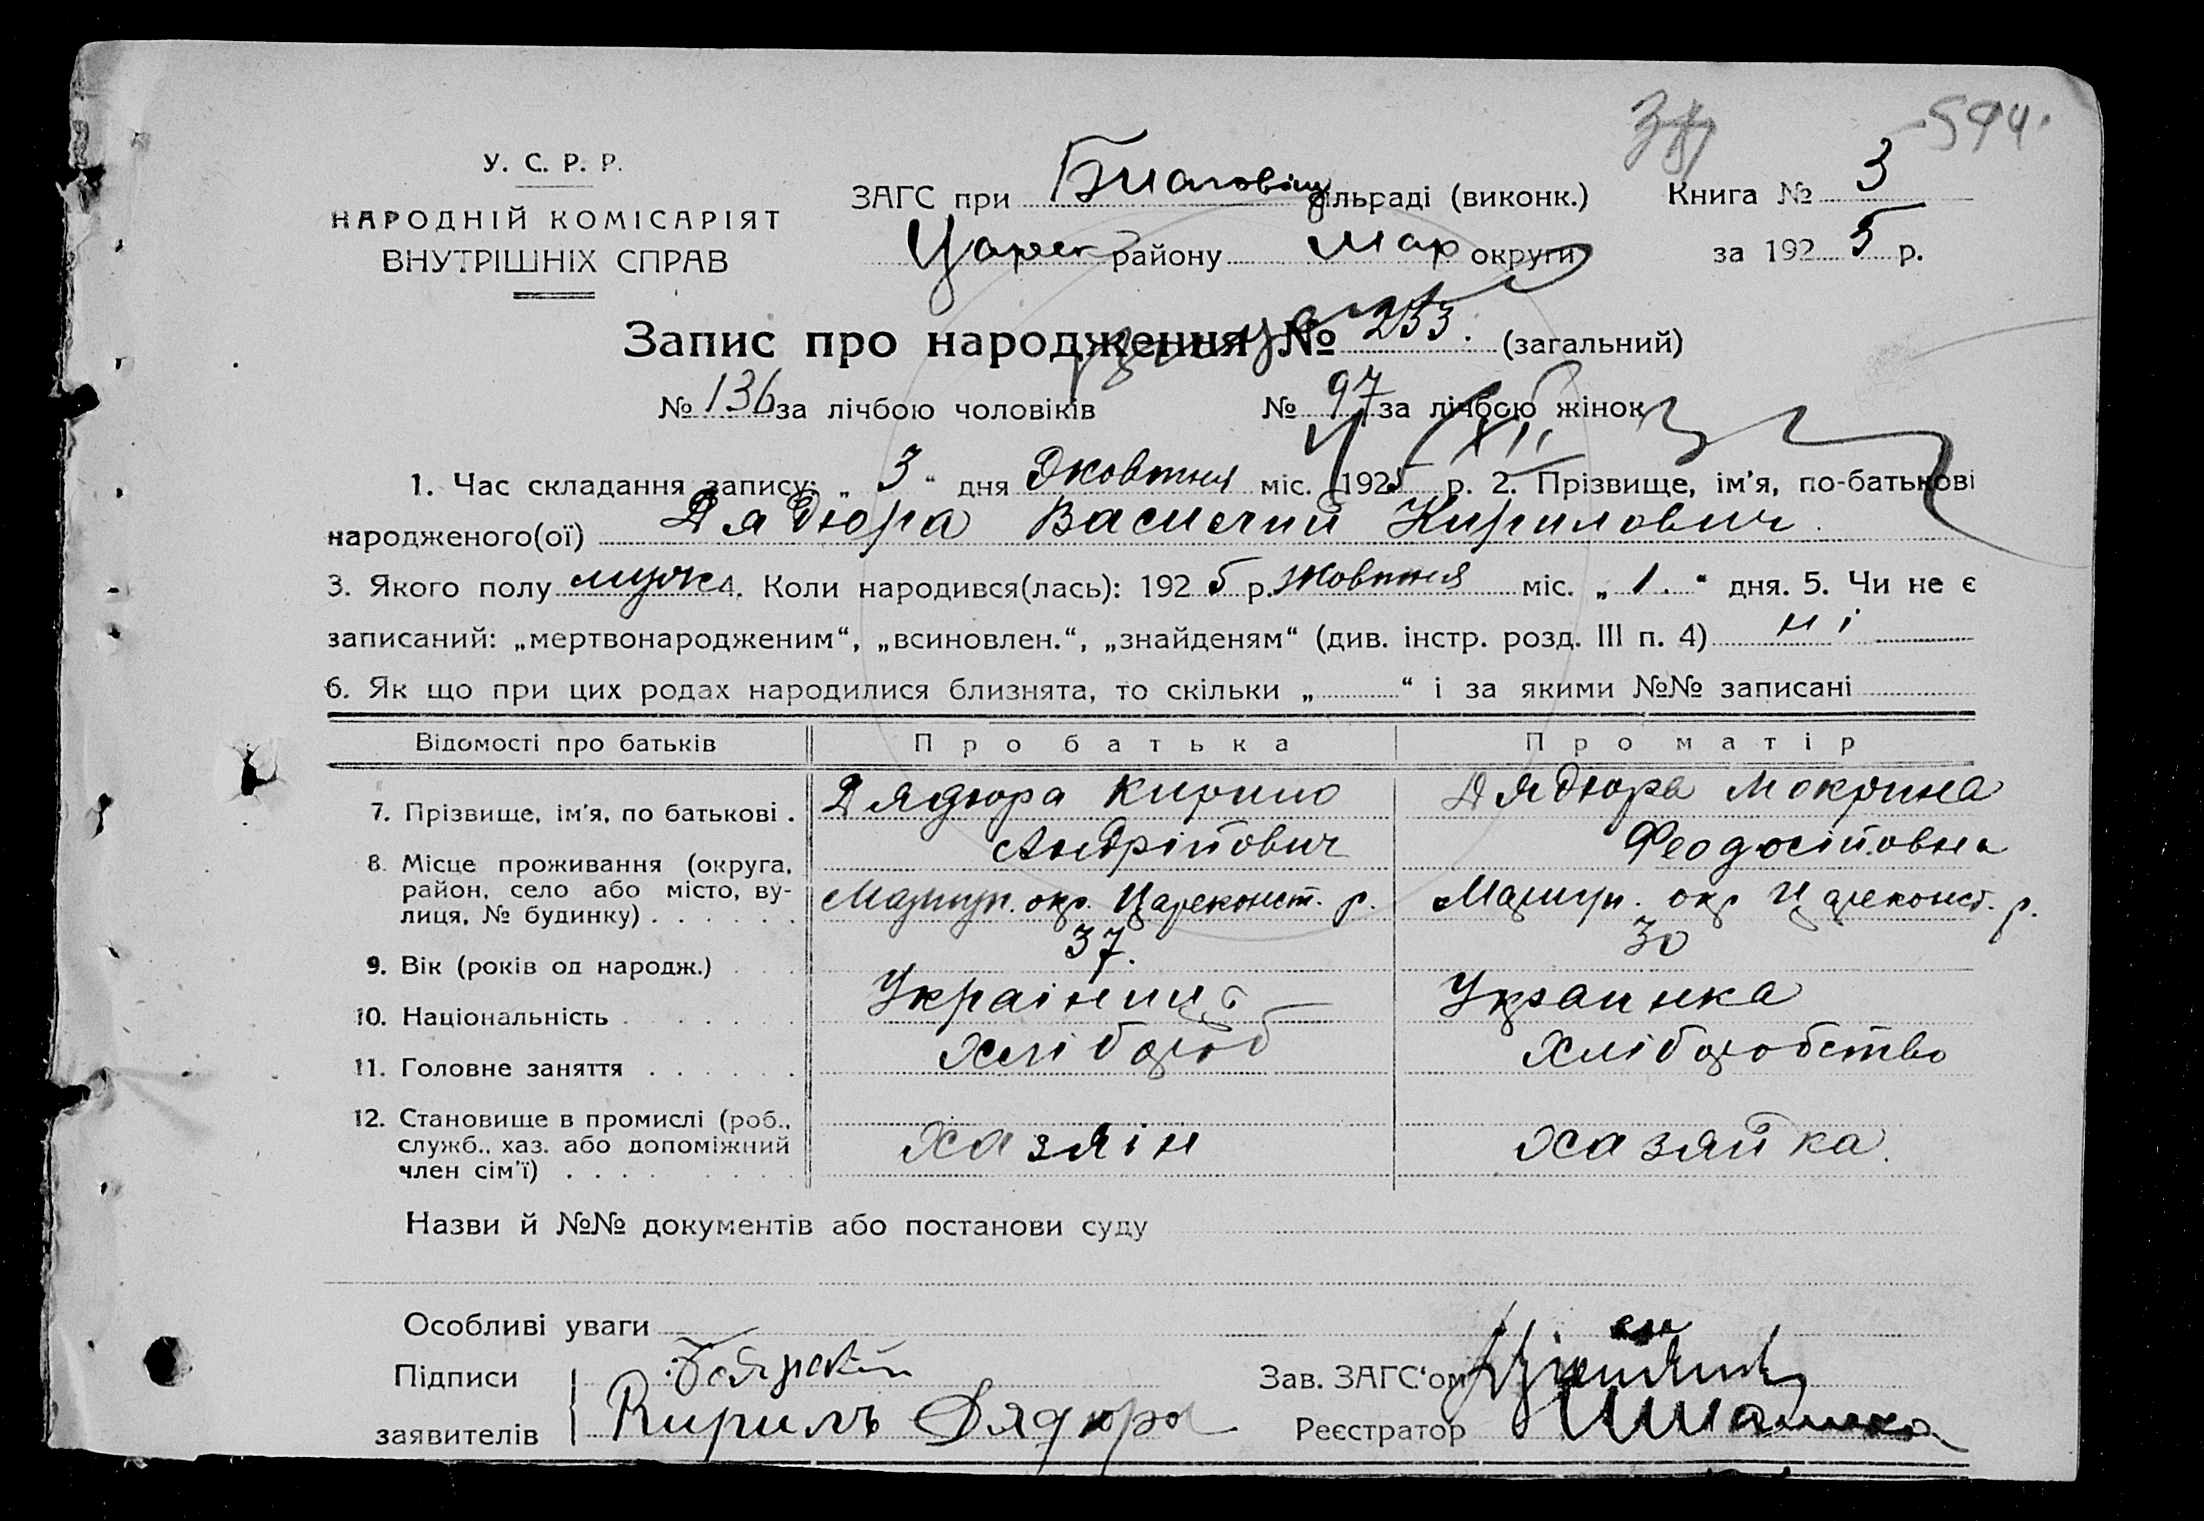 594.
У. С. Р. Р.
НАРОДНІЙ КОМІСАРІЯТ
ВНУТРІШНІХ СПРАВ
ЗАГС при Благовіщ сільраді (виконк.) Книга № 3
Царек району Мар округи за 1925 р.
Запис про народження № 233. (загальний)
№ 136 за лічбою чоловіків № 97 за лічбою жінок
1. Час складання запису: „ 3 “ дня Жовтня міс. 1925 р. 2. Прізвище, ім'я, по-батькові
народженого(ої) Дядюра Василий Кирилович
3. Якого полу муж 4. Коли народився(лась): 1925 р. Жовтня міс. „ 1. “ дня. 5. Чи не є
записаний: „мертвонародженим“, „всиновлен.“, „знайденям“ (див. інстр. розд. III п. 4) ні
6. Як що при цих родах народилися близнята, то скільки „ “ і за якими №№ записані
Відомості про батьків Про батька Про матір
7. Прізвище, ім'я, по батькові . Дядюра Кирило Андрійович Дядюра Мокрина Феодосійовна
8. Місце проживання (округа,
район, село або місто, ву-
лиця, № будинку) . . . . . . Мариуп. окр. Цареконст. р. Мариуп. окр Цареконст. р.
9. Вік (років од народж.) . . . 37. 30
10. Національність . . . . . . Україниц Украинка
11. Головне заняття . . . . . . Хлібороб Хліборобство
12. Становище в промислі (роб.,
служб., хаз. або допоміжний
член сім'ї) . . . . . . . . Хазяін Хазяйка.
Назви й №№ документів або постанови суду
Особливі уваги
Підписи Зав. ЗАГС'ом
заявителів Кирилъ Дядюра Реєстратор